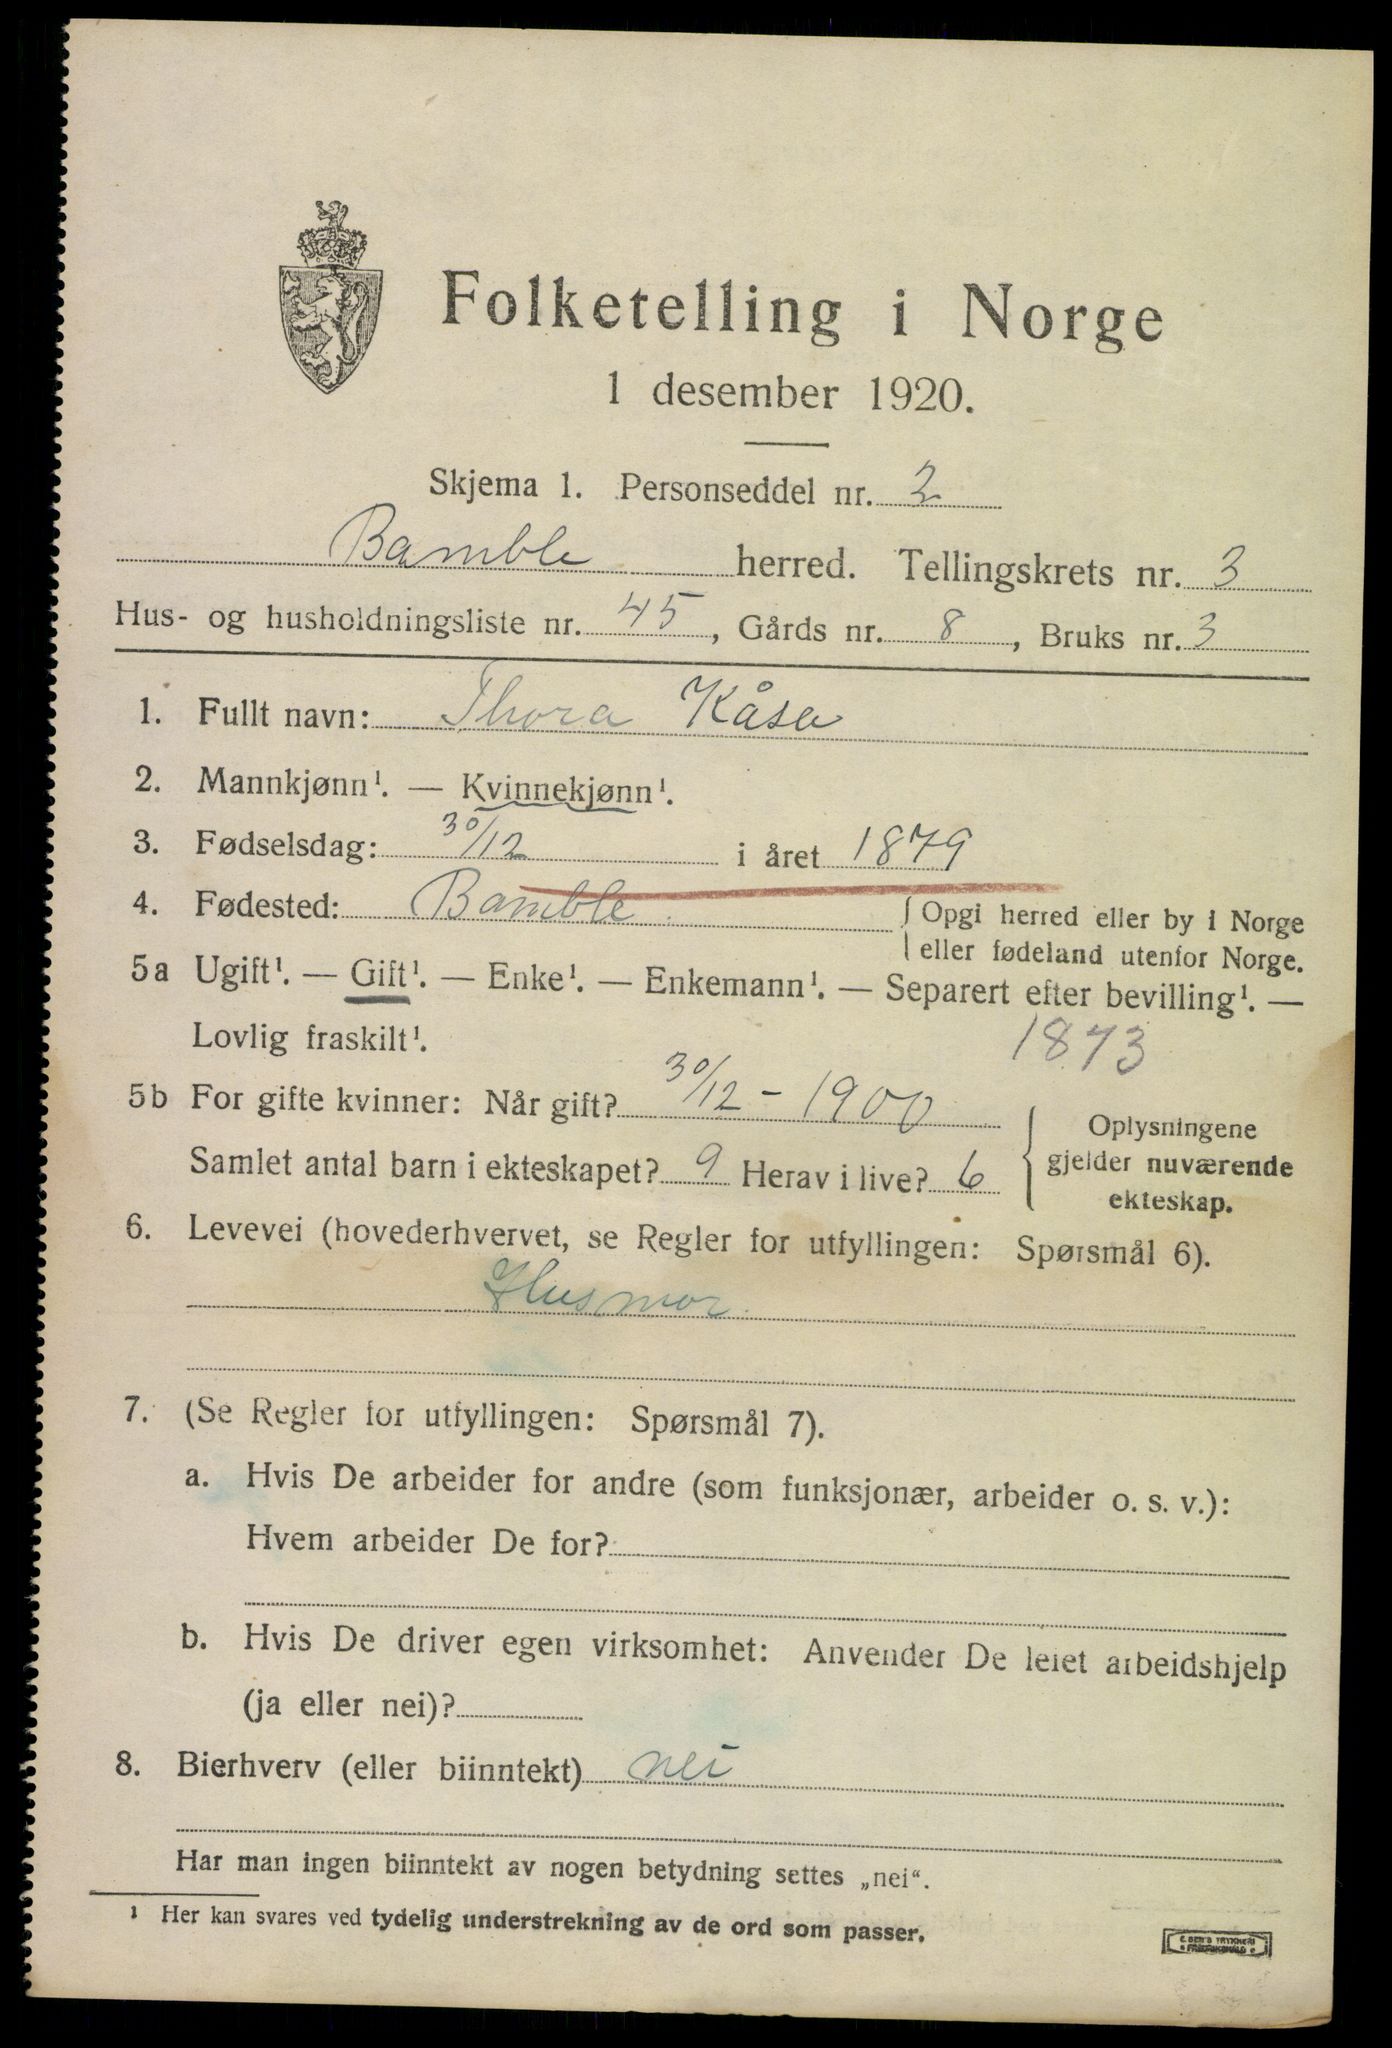 Folketelling i Norge
1 desember 1920.
Skjema 1. Personseddel nr. 2
Bamble herred. Tellingskrets nr. 3
Hus- og husholdningsliste nr. 45, Gårds nr. 8, Bruks nr. 3
1. Fullt navn: Thora Kåsa
2. Mannkjønn¹. — Kvinnekjønn¹.
3. Fødselsdag: 30/12 i året 1879
4. Fødested: Bamble. { Opgi herred eller by i Norge
eller fødeland utenfor Norge.
5a Ugift¹. — Gift¹. — Enke¹. — Enkemann¹. — Separert efter bevilling¹. —
Lovlig fraskilt¹. 1873
5b For gifte kvinner: Når gift? 30/12 - 1900
Samlet antal barn i ekteskapet? 9 Herav i live? 6
{ Oplysningene
gjelder nuværende
ekteskap.
6. Levevei (hovederhvervet, se Regler for utfyllingen: Spørsmål 6).
Husmor.
7. (Se Regler for utfyllingen: Spørsmål 7).
a. Hvis De arbeider for andre (som funksjonær, arbeider o. s. v.):
Hvem arbeider De for?
b. Hvis De driver egen virksomhet: Anvender De leiet arbeidshjelp
(ja eller nei)?
8. Bierhverv (eller biinntekt) nei
Har man ingen biinntekt av nogen betydning settes „nei“.
¹ Her kan svares ved tydelig understrekning av de ord som passer.